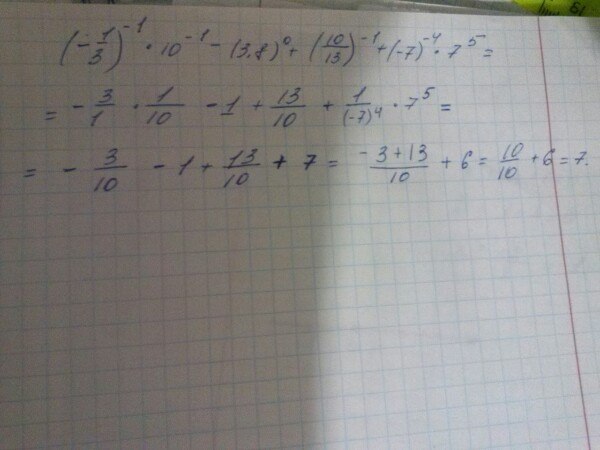 (-1/3)^-1 · 10^-1 - (3,8)^0 + (10/13)^-1 + (-7)^-4 · 7^5 =
= - 3/1 · 1/10 - 1 + 13/10 + 1/(-7)^4 · 7^5 =
= - 3/10 - 1 + 13/10 + 7 = (-3+13)/10 + 6 = 10/10 + 6 = 7.